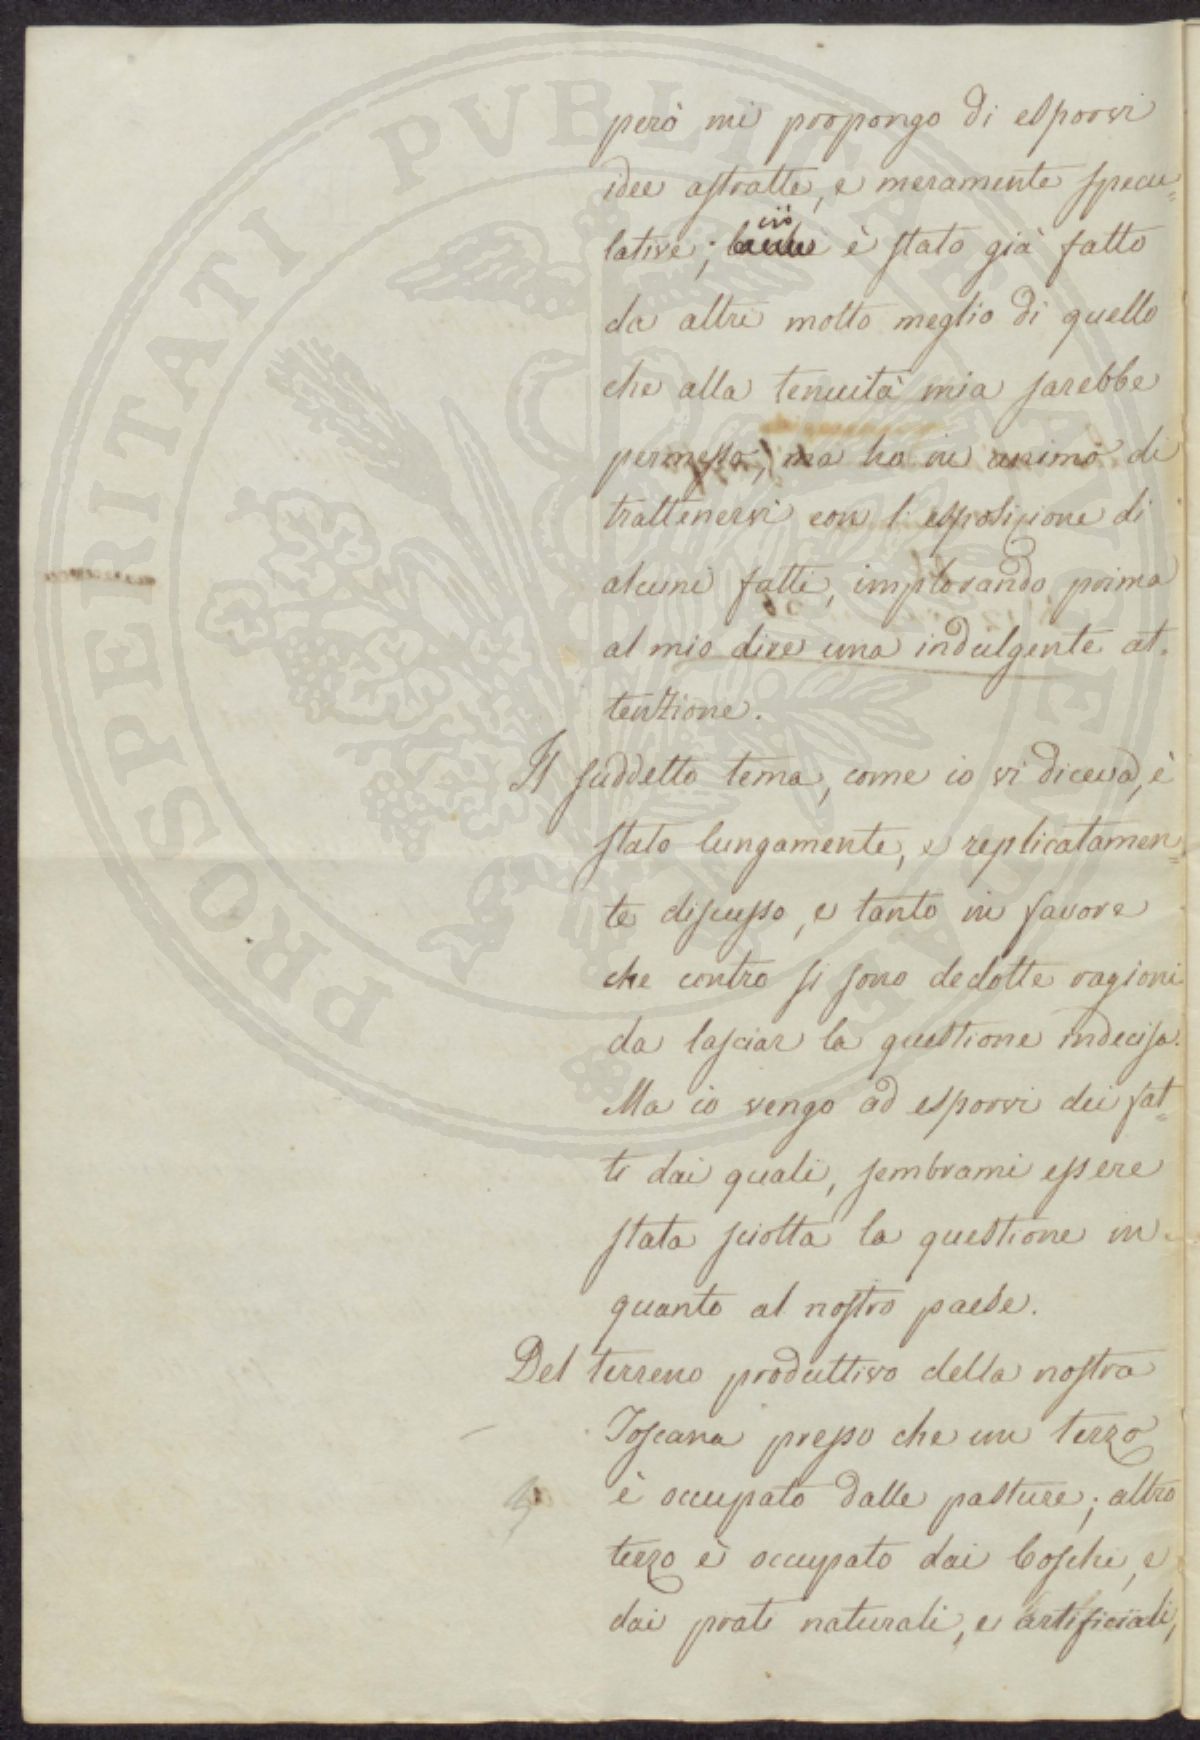 però mi propongo di esporvi
idee astratte, e meramente specu=
lative; ciò è stato già fatto
da altri molto meglio di quello
che alla tenuità mia sarebbe
permesso, ma ho in animo di
trattenervi con l'esposizione di
alcuni fatti, implorando prima
al mio dire una indulgente at=
tenzione.
Il suddetto tema, come io vi diceva, è
stato lungamente, e replicatamen=
te discusso, e tanto in favore
che contro si sono dedotte ragioni
da lasciar la questione indecisa.
Ma io vengo ad esporvi dei fat=
ti dai quali, sembrami essere
stata sciolta la questione in
quanto al nostro paese.
Del terreno produttivo della nostra
Toscana presso che un terzo
è occupato dalle pasture; altro
terzo è occupato dai boschi, e
dai prati naturali, e artificiali,
PROSPERITATI PVBLICAE AVGENDAE